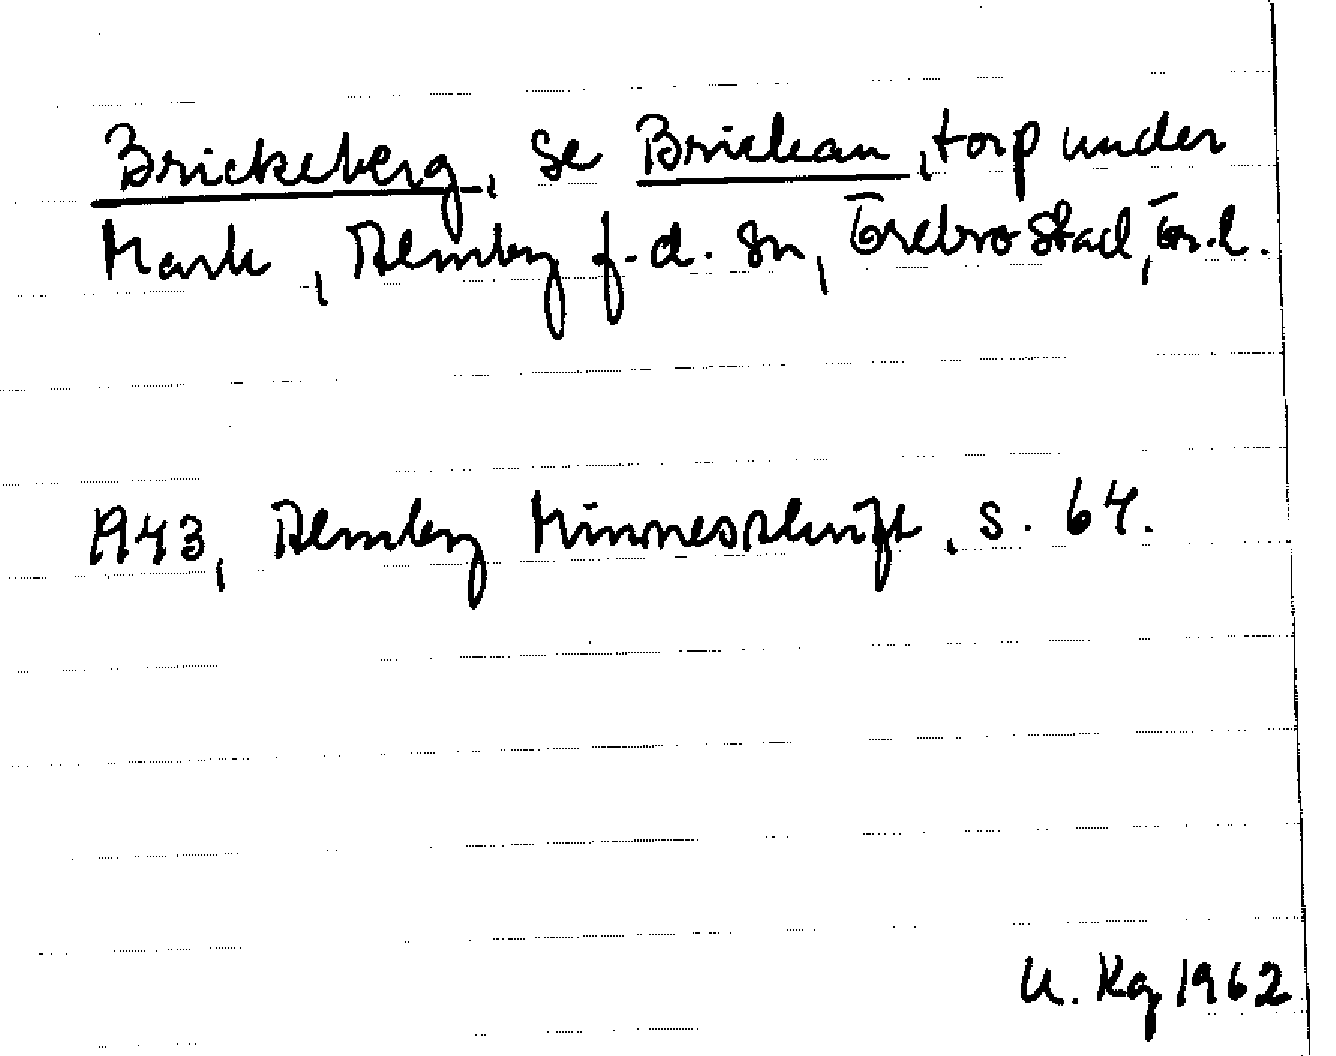 Brickeberg, se Brickan, torp under
Mark, Almby f.d. sn, Örebro stad, Ör.l.
1943, Almby Minnesskrift, s. 64.
U. Kg 1962